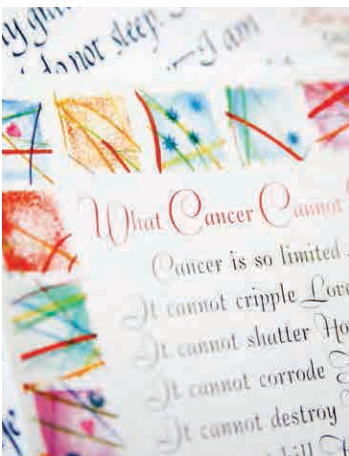 do not sleep.
I am
What Cancer Cannot
Cancer is so limited
It cannot cripple Love
It cannot shatter Ho
It cannot corrode
It cannot destroy